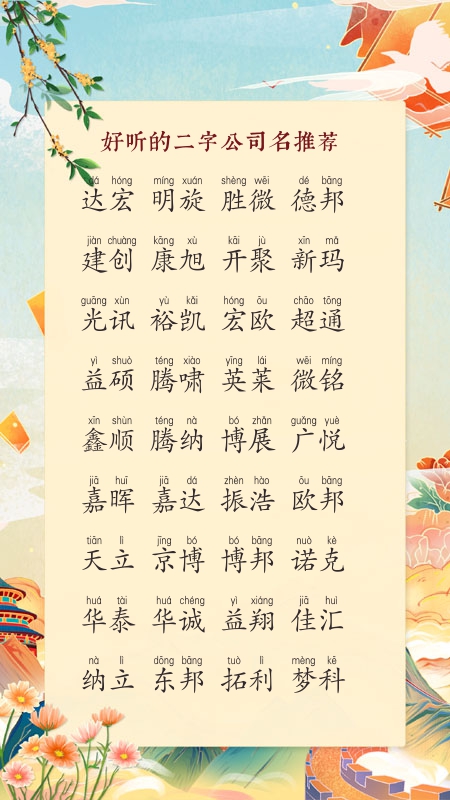 好听的二字公司名推荐
dá hóng míng xuán shèng wēi dé bāng
达宏 明旋 胜微 德邦
jiàn chuàng kāng xù kāi jù xīn mǎ
建创 康旭 开聚 新玛
guāng xùn yù kǎi hóng ōu chāo tōng
光讯 裕凯 宏欧 超通
yì shuò téng xiào yīng lái wēi míng
益硕 腾啸 英莱 微铭
xīn shùn téng nà bó zhǎn guǎng yuè
鑫顺 腾纳 博展 广悦
jiā huī jiā dá zhèn hào ōu bāng
嘉晖 嘉达 振浩 欧邦
tiān lì jīng bó bó bāng nuò kè
天立 京博 博邦 诺克
huá tài huá chéng yì xiáng jiā huì
华泰 华诚 益翔 佳汇
nà lì dōng bāng tuò lì mèng kē
纳立 东邦 拓利 梦科